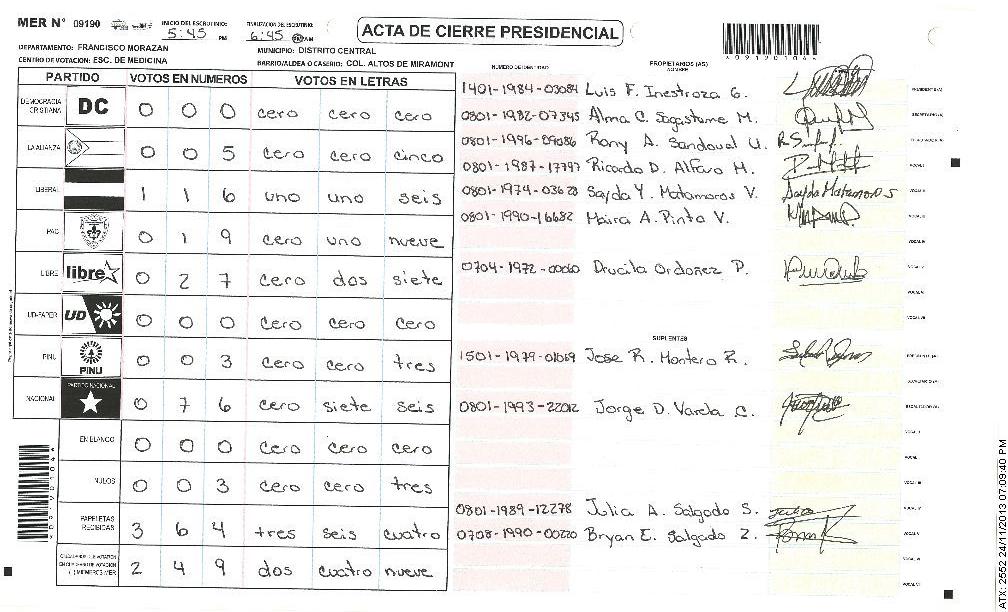 MER N° 09190 INICIO DEL ESCRUTINIO: 5:45 PM FINALIZACION DEL ESCRUTINIO: 6:45 ACTA DE CIERRE PRESIDENCIAL
DEPARTAMENTO: FRANCISCO MORAZAN MUNICIPIO: DISTRITO CENTRAL
CENTRO DE VOTACION: ESC. DE MEDICINA BARRIO/ALDEA O CASERIO: COL. ALTOS DE MIRAMONT
PARTIDO VOTOS EN NUMEROS VOTOS EN LETRAS NUMERO DE IDENTIDAD PROPIETARIOS (AS) NOMBRE
DEMOCRACIA CRISTIANA DC 0 0 0 cero cero cero
LA ALIANZA 0 0 5 cero cero cinco
LIBERAL 1 1 6 uno uno seis
PAC 0 1 9 cero uno nueve
LIBRE libre 0 2 7 cero dos siete
UD-FAPER UD 0 0 0 cero cero cero
PINU PINU 0 0 3 cero cero tres
NACIONAL PARTIDO NACIONAL 0 7 6 cero siete seis
EN BLANCO 0 0 0 cero cero cero
NULOS 0 0 3 cero cero tres
PAPELETAS RECIBIDAS 3 6 4 tres seis cuatro
2 4 9 dos cuatro nueve
1401-1984-03084 Luis F. Inestroza G. PRESIDENTE(A)
0801-1982-07345 Alma C. Sagastume M. SECRETARIO(A)
0801-1996-09086 Rony A. Sandoval U.
0801-1987-17797 Ricardo D. Alfaro M. VOCAL I
0801-1974-03628 Sayda Y. Matamoros V. Sayda Matamoros VOCAL II
0801-1990-16682 Maira A. Pinto V. VOCAL III
VOCAL IV
0704-1972-00060 Drucila Ordoñez P. VOCAL V
VOCAL VI
VOCAL VII
SUPLENTES
1501-1979-01069 Jose R. Montero R. PRESIDENTE (A)
SECRETARIO (A)
0801-1993-22012 Jorge D. Varela C. ESCRUTADOR (A)
VOCAL I
VOCAL II
VOCAL III
0801-1989-12278 Julia A. Salgado S. VOCAL IV
0708-1990-00220 Bryan E. Salgado Z. VOCAL V
VOCAL VI
VOCAL VII
ATX: 2552 24/11/2013 07:09:40 PM